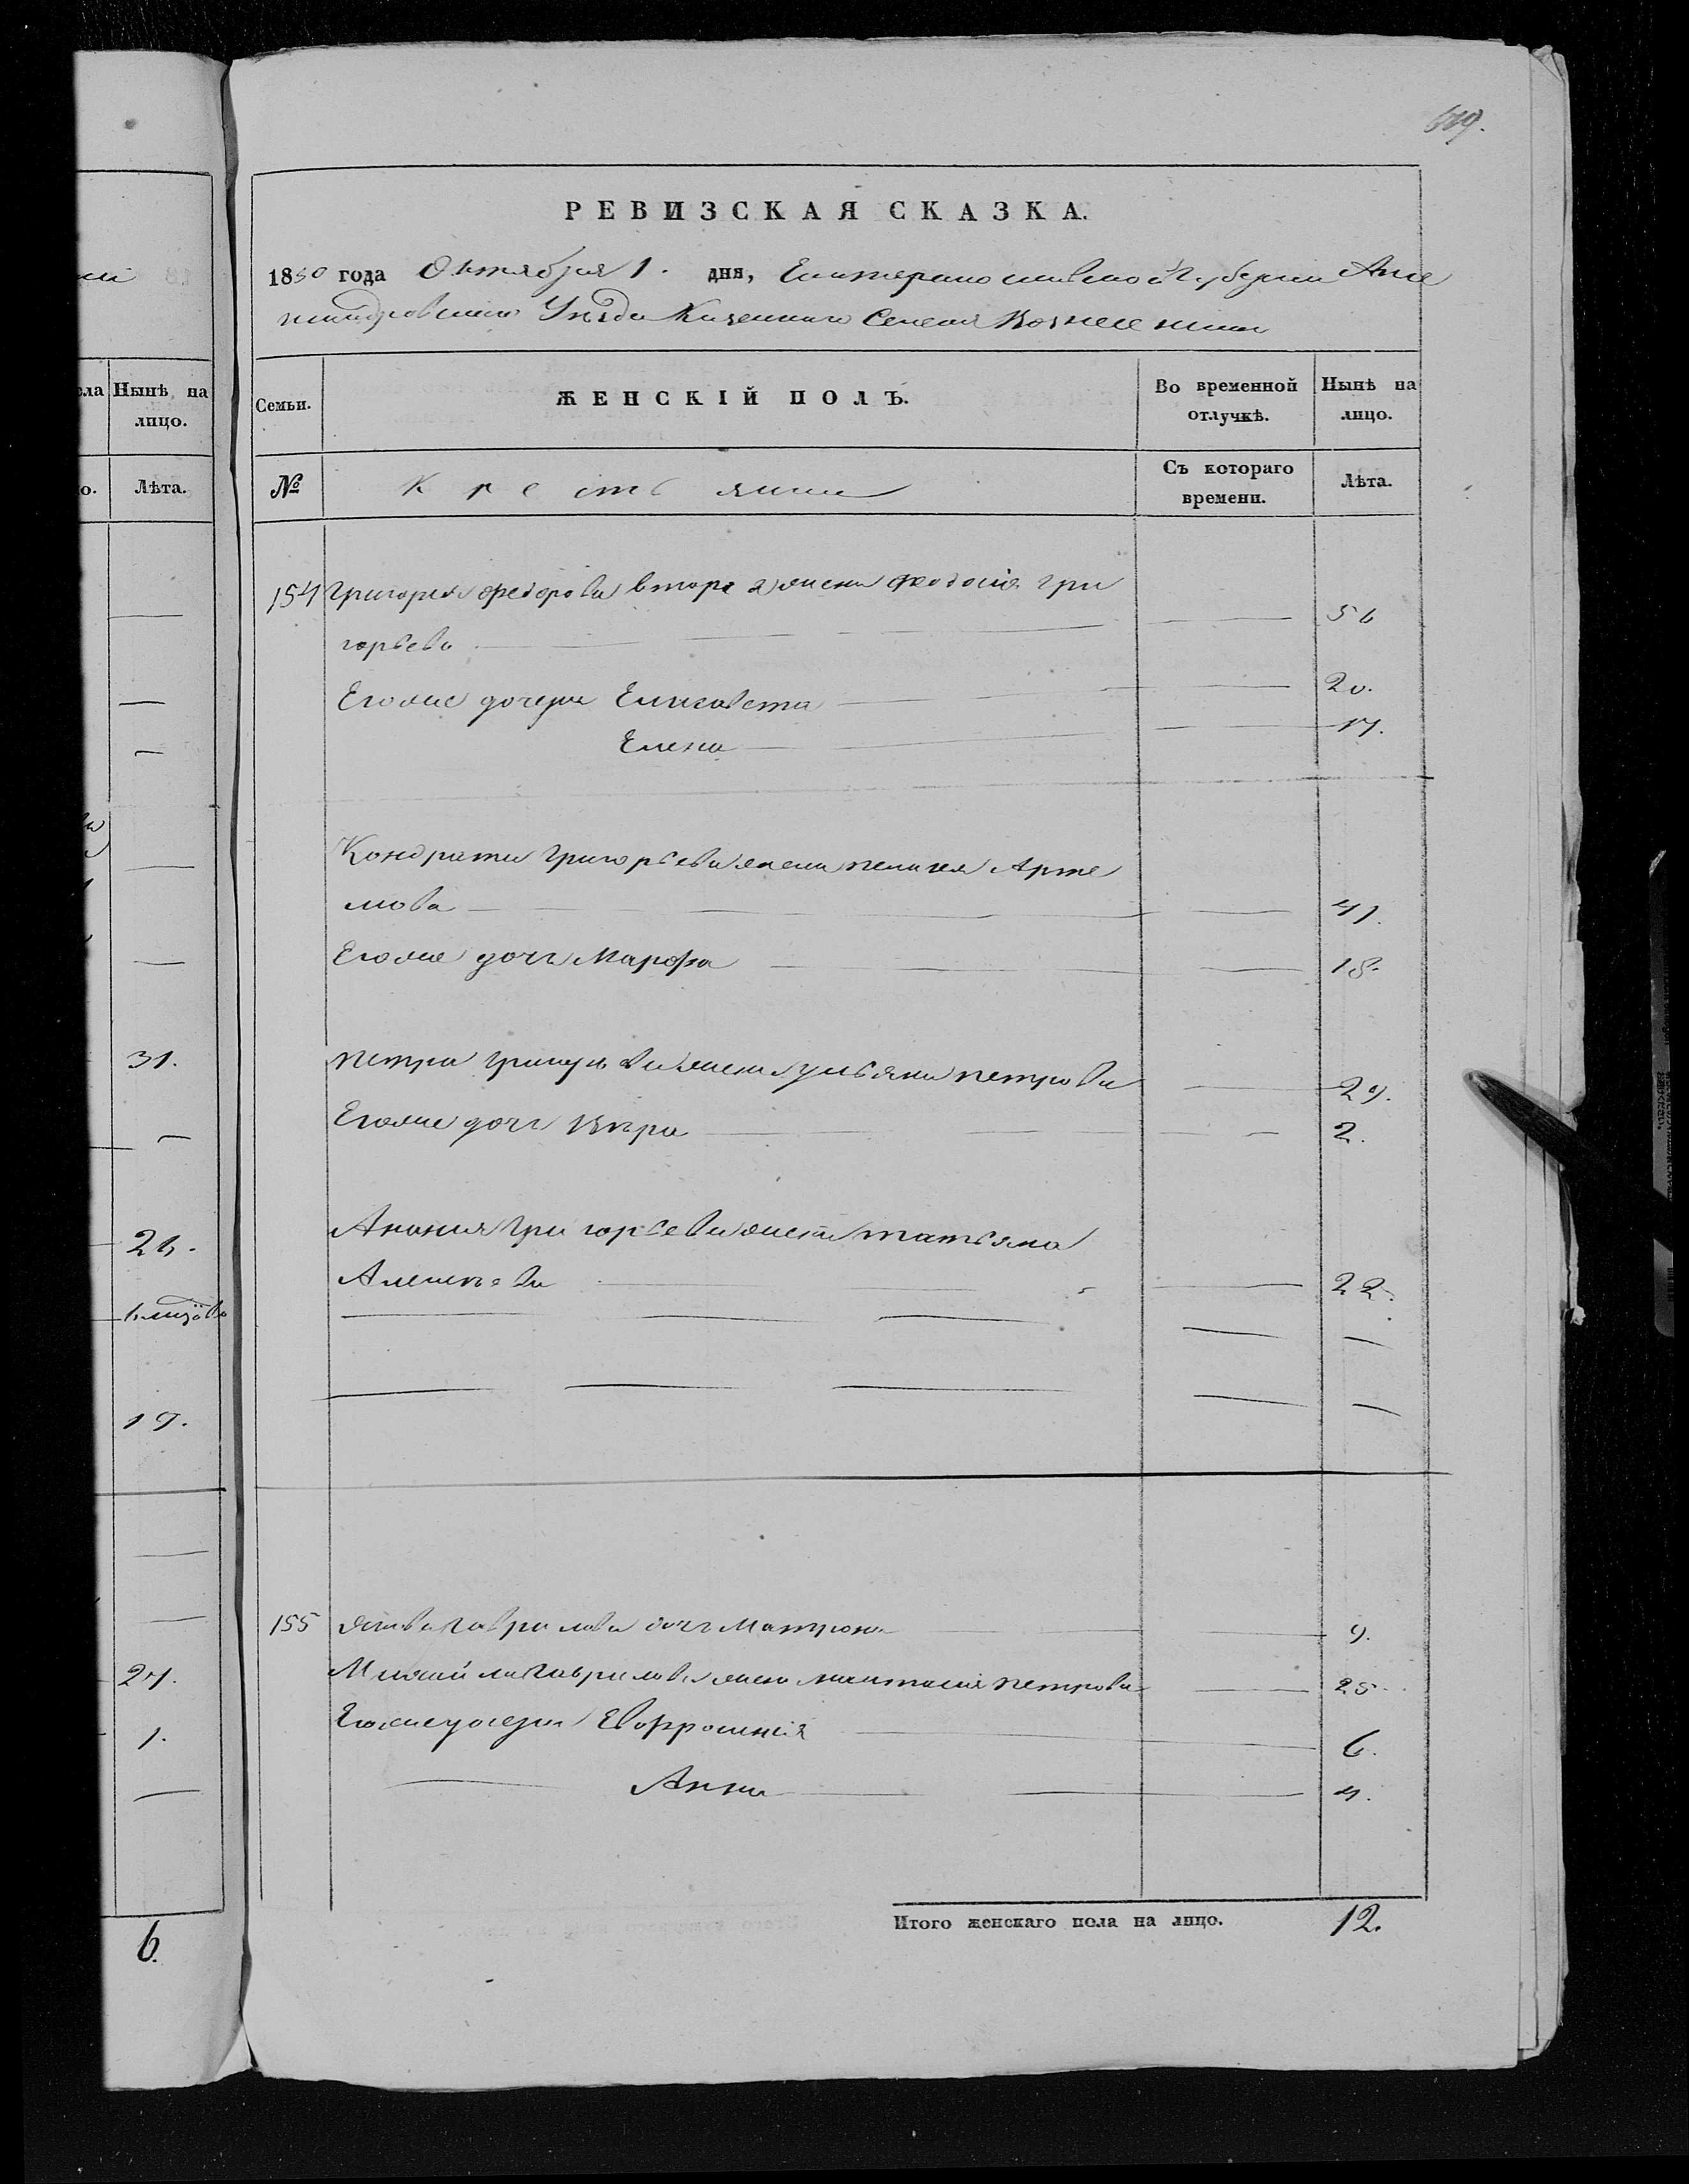 РЕВИЗСКАЯ СКАЗКА.
1850 года Октября 1. дня, Екатеринославской Губернии Алек
сандровскаго Уѣзда Казеннаго Селенія Вознесенки
сла Нынѣ на лицо.
о. Лѣта.
Семьи. ЖЕНСКІЙ ПОЛЪ. Во временной отлучкѣ. Нынѣ на лицо.
№ Крестьяне Съ котораго времени. Лѣта.
154 Григорія Федорова втора я жена Феодосія Гри
горьева 56
Егоже дочери Елисавета 20.
Елена 17.
Кондратія Григорьева жена Пелагея Арте
мова 41.
Егоже дочь Марфа 18.
Петра Григорьева жена Ульяна Петрова 29.
Егоже дочь Вѣра 2.
Анания Григорьева жена Татьяна
Алексѣева 22.
155 Якова Гаврилова дочь Матрона 9.
Михайла Гаврилова жена Настасія Петрова 25.
Егоже дочери Евфросинія 6.
Анна 4.
Итого женскаго пола на лицо. 12.
31.
19.
27.
1.
6.